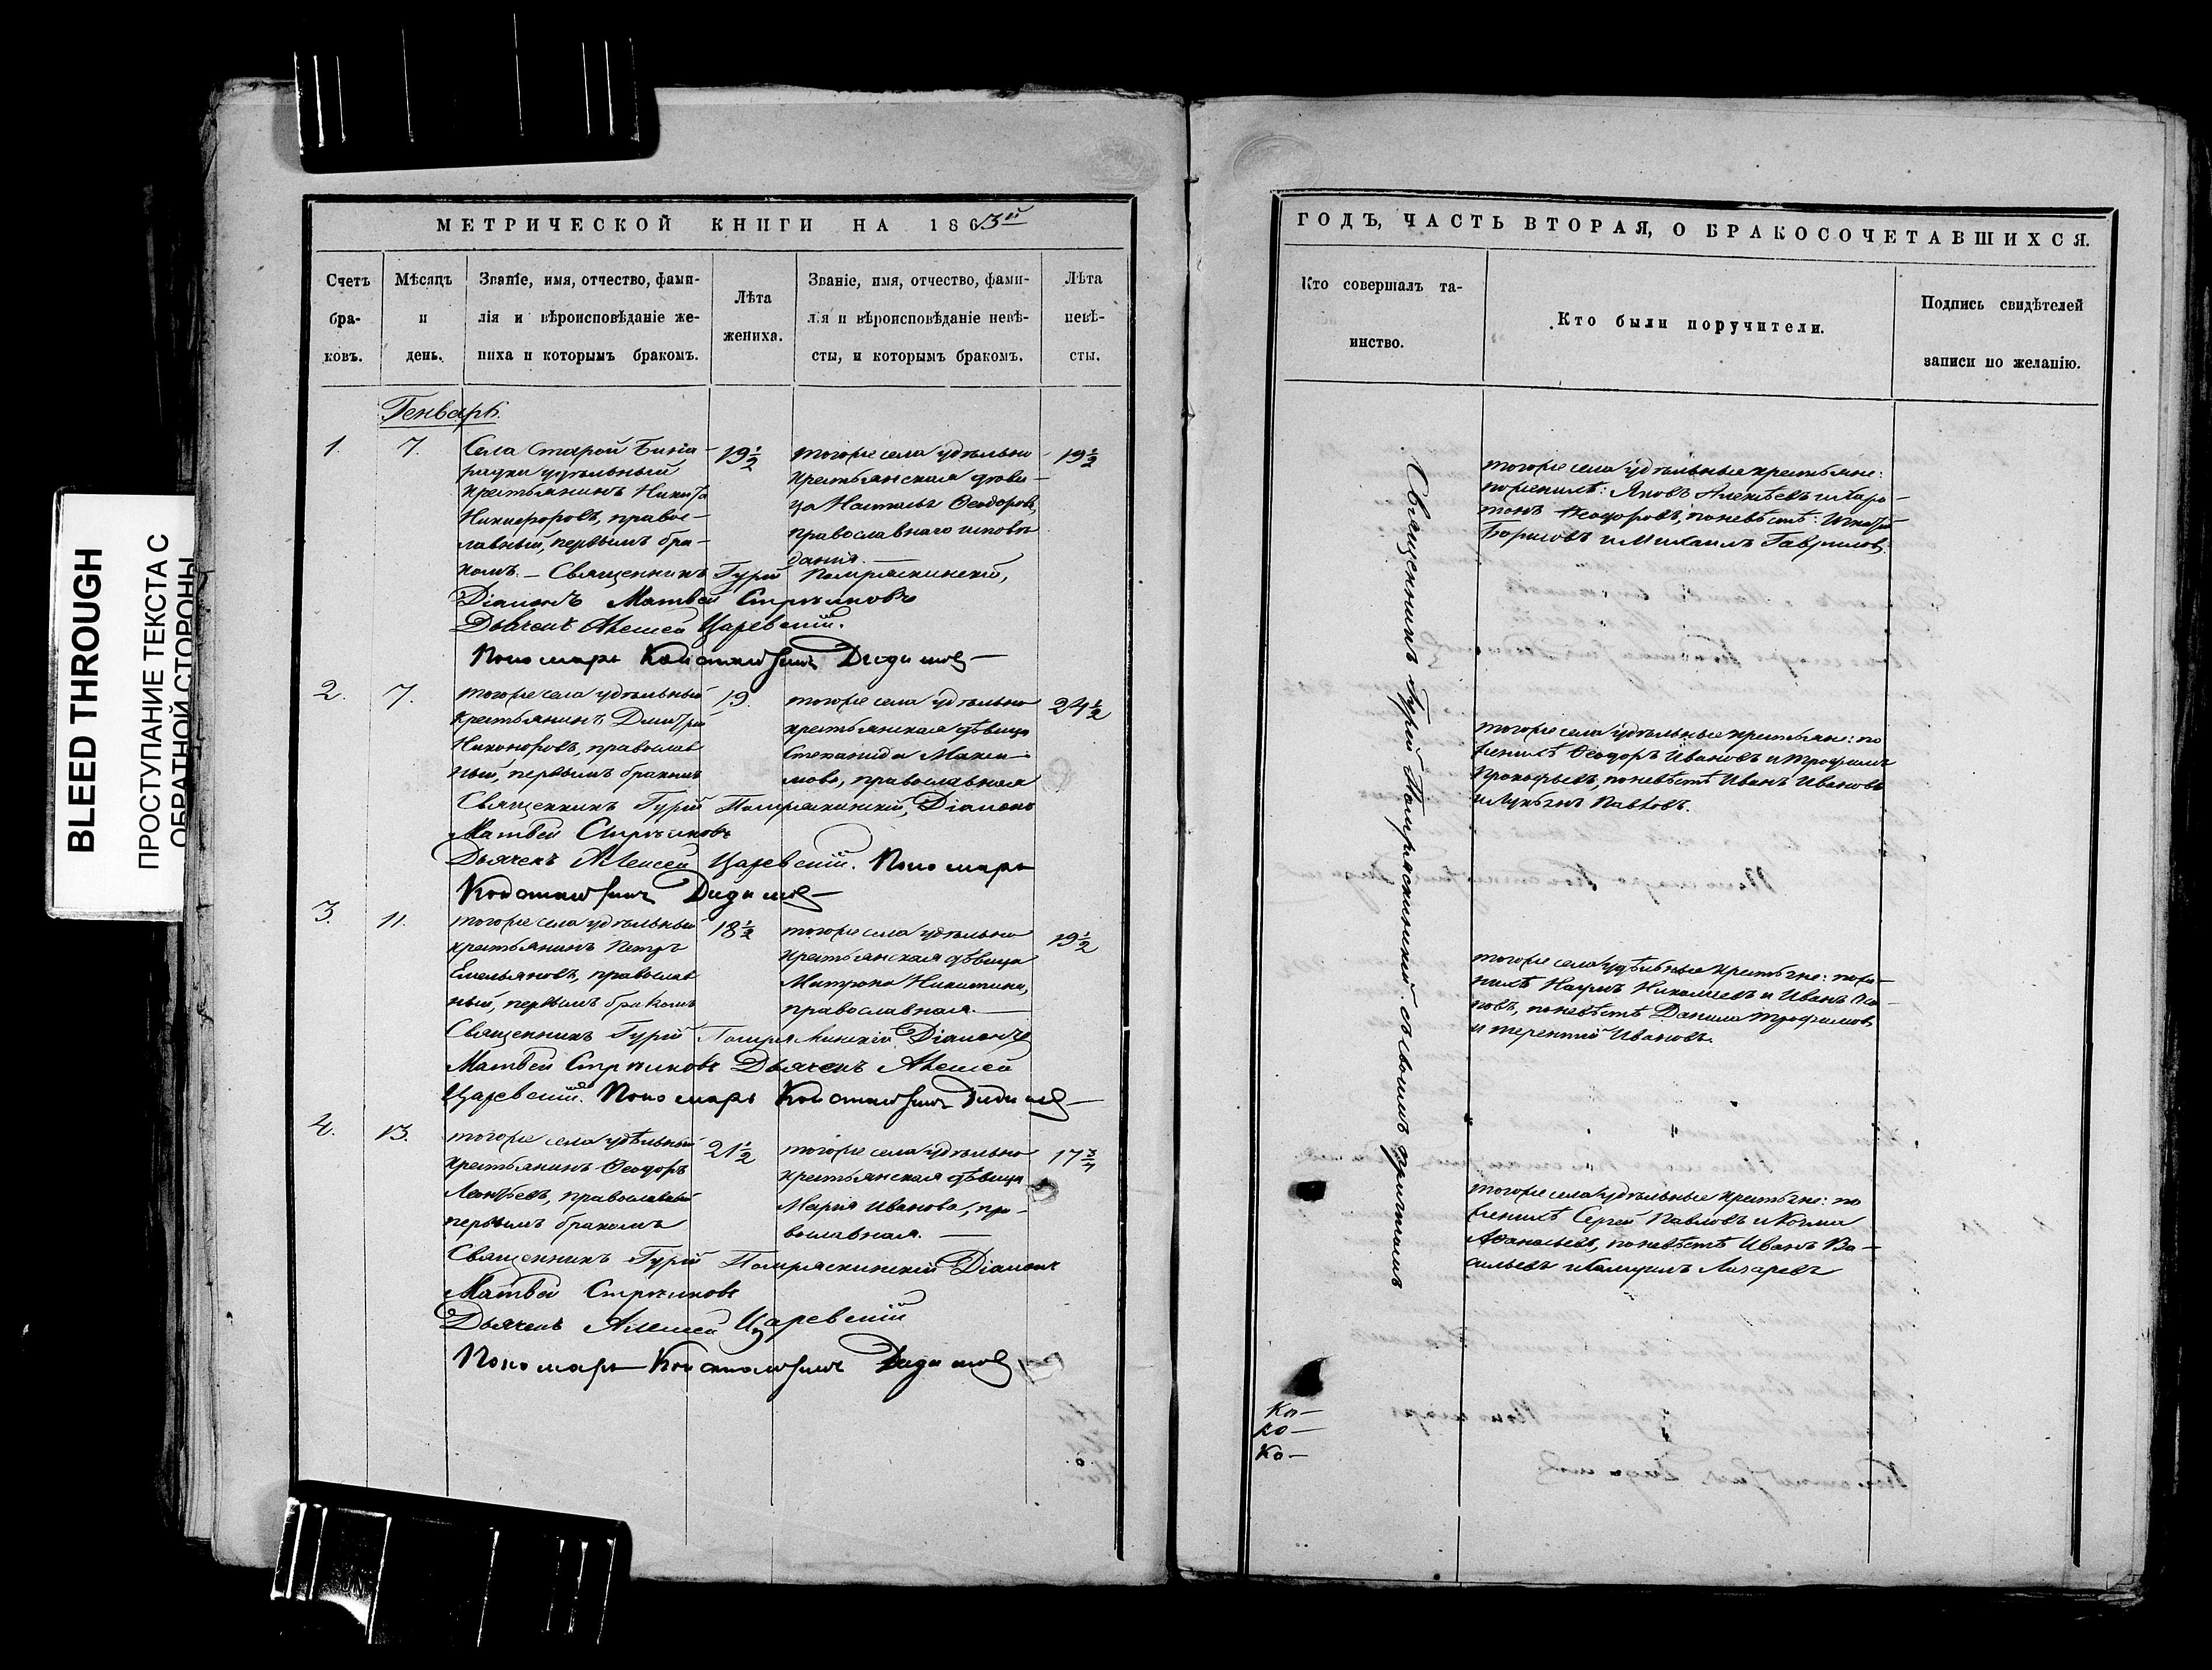 BLEED THROUGH
ПРОСТУПАНИЕ ТЕКСТА С
ОБРАТНОЙ СТОРОНЫ
МЕТРИЧЕСКОЙ КНИГИ НА 1863й
Счетъ бра-ковъ.
Мѣсяцъ и день.
Званіе, имя, отчество, фами-
лія и вѣроисповѣданіе же-
ниха и которымъ бракомъ.
Лѣта
жениха.
Званіе, имя, отчество, фами-
лія и вѣроисповѣданіе невѣ-
сты, и которымъ бракомъ.
Лѣта
невѣ-
сты.
Генварь.
1.
7.
Села Старой Бина-
радки удѣльный
крестьянинъ Никита
Никифоровъ, правос-
лавный, первымъ бра-
комъ. – Священникъ Гурій
Діаконъ Матвей
Дьячекъ Алексей Царевскій.
Пономарь Константинъ
19½
тогоже села удѣльно
крестьянская дѣви-
ца Наталья Ѳеодорова,
православнаго исповѣ
данія.
19½
2.
7.
тогоже села удѣльный
крестьянинъ Дмитрій
Никоноровъ, православ
ный, первымъ бракомъ
Священникъ Гурій Діаконъ
Матвей
Дьячекъ Алексей Царевскій. Пономарь
Константинъ
19.
тогоже села удѣльно
крестьянская дѣвица
Степанида Макси-
мова, православная
24½
3.
11.
тогоже села удѣльный
крестьянинъ Петръ
Емельяновъ, православ
ный, первымъ бракомъ
Священникъ Гурій Діаконъ
Матвей Дьячекъ Алексей
Царевскій. Пономарь Константинъ
18½
тогоже села удѣльно
крестьянская дѣвица
Матрона Никитина,
православная. –
19½
4.
13.
тогоже села удѣльный
крестьянинъ Ѳеодоръ
Леонтьевъ, православный
первымъ бракомъ
Священникъ Гурій Діаконъ
Матвей
Дьячекъ Алексей Царевскій
Пономарь Константинъ
21½
тогоже села удѣльно
крестьянская дѣвица
Марія Иванова, пра-
вославная. –
17
ГОДЪ, ЧАСТЬ ВТОРАЯ, О БРАКОСОЧЕТАВШИХСЯ.
Кто совершалъ та-
инство.
Кто были поручители.
Подпись свидѣтелей
записи по желанію.
Священникъ Гурій съ своимъ причтомъ
тогоже села удѣльные крестьяне:
по женихѣ: Яковъ Алексѣевъ и Хари-
тонъ Ѳеодоровъ, по невѣстѣ: Игнатій
Борисовъ и Михаилъ Гавриловъ.
тогоже села удѣльные крестьяне: по
женихѣ Ѳеодоръ Ивановъ и Трофимъ
Прокофьевъ, по невѣстѣ Иванъ Ивановъ
и Лукьянъ Павловъ.
тогоже села удѣльные крестьяне: по же-
нихѣ Наумъ Николаевъ и Иванъ
по невѣстѣ Данила Трофимовъ
и Терентій Ивановъ.
тогоже села удѣльные крестьяне: по
женихѣ Сергей Павловъ и Козма
Аѳанасьевъ, по невѣстѣ Иванъ Ва-
сильевъ Лазаревъ
Ко–
Ко–